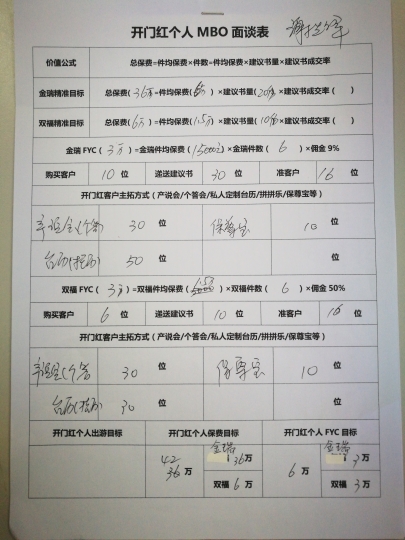 开门红个人 MBO 面谈表
价值公式 总保费=件均保费×件数=件均保费×建议书量×建议书成交率
金瑞精准目标 总保费(36万)=件均保费(6万)×建议书量(20份)×建议书成交率( )
双福精准目标 总保费(6万)=件均保费(1.5万)×建议书量(10份)×建议书成交率( )
金瑞 FYC(3万)=金瑞件均保费(15000元)×金瑞件数(6)×佣金 9%
购买客户 10 位 递送建议书 30 位 准客户 16 位
开门红客户主拓方式(产说会/个答会/私人定制台历/拼拼乐/保尊宝等)
30 位 保尊宝 10 位
台历 50 位
双福 FYC(3万)=双福件均保费(1.5万)×双福件数(6)×佣金 50%
购买客户 6 位 递送建议书 10 位 准客户 16 位
开门红客户主拓方式(产说会/个答会/私人定制台历/拼拼乐/保尊宝等)
30 位 保尊宝 10 位
台历 30 位
开门红个人出游目标 开门红个人保费目标 开门红个人 FYC 目标
42 36 万 金瑞 36 万 6 万 金瑞 3 万
双福 6 万 双福 3 万